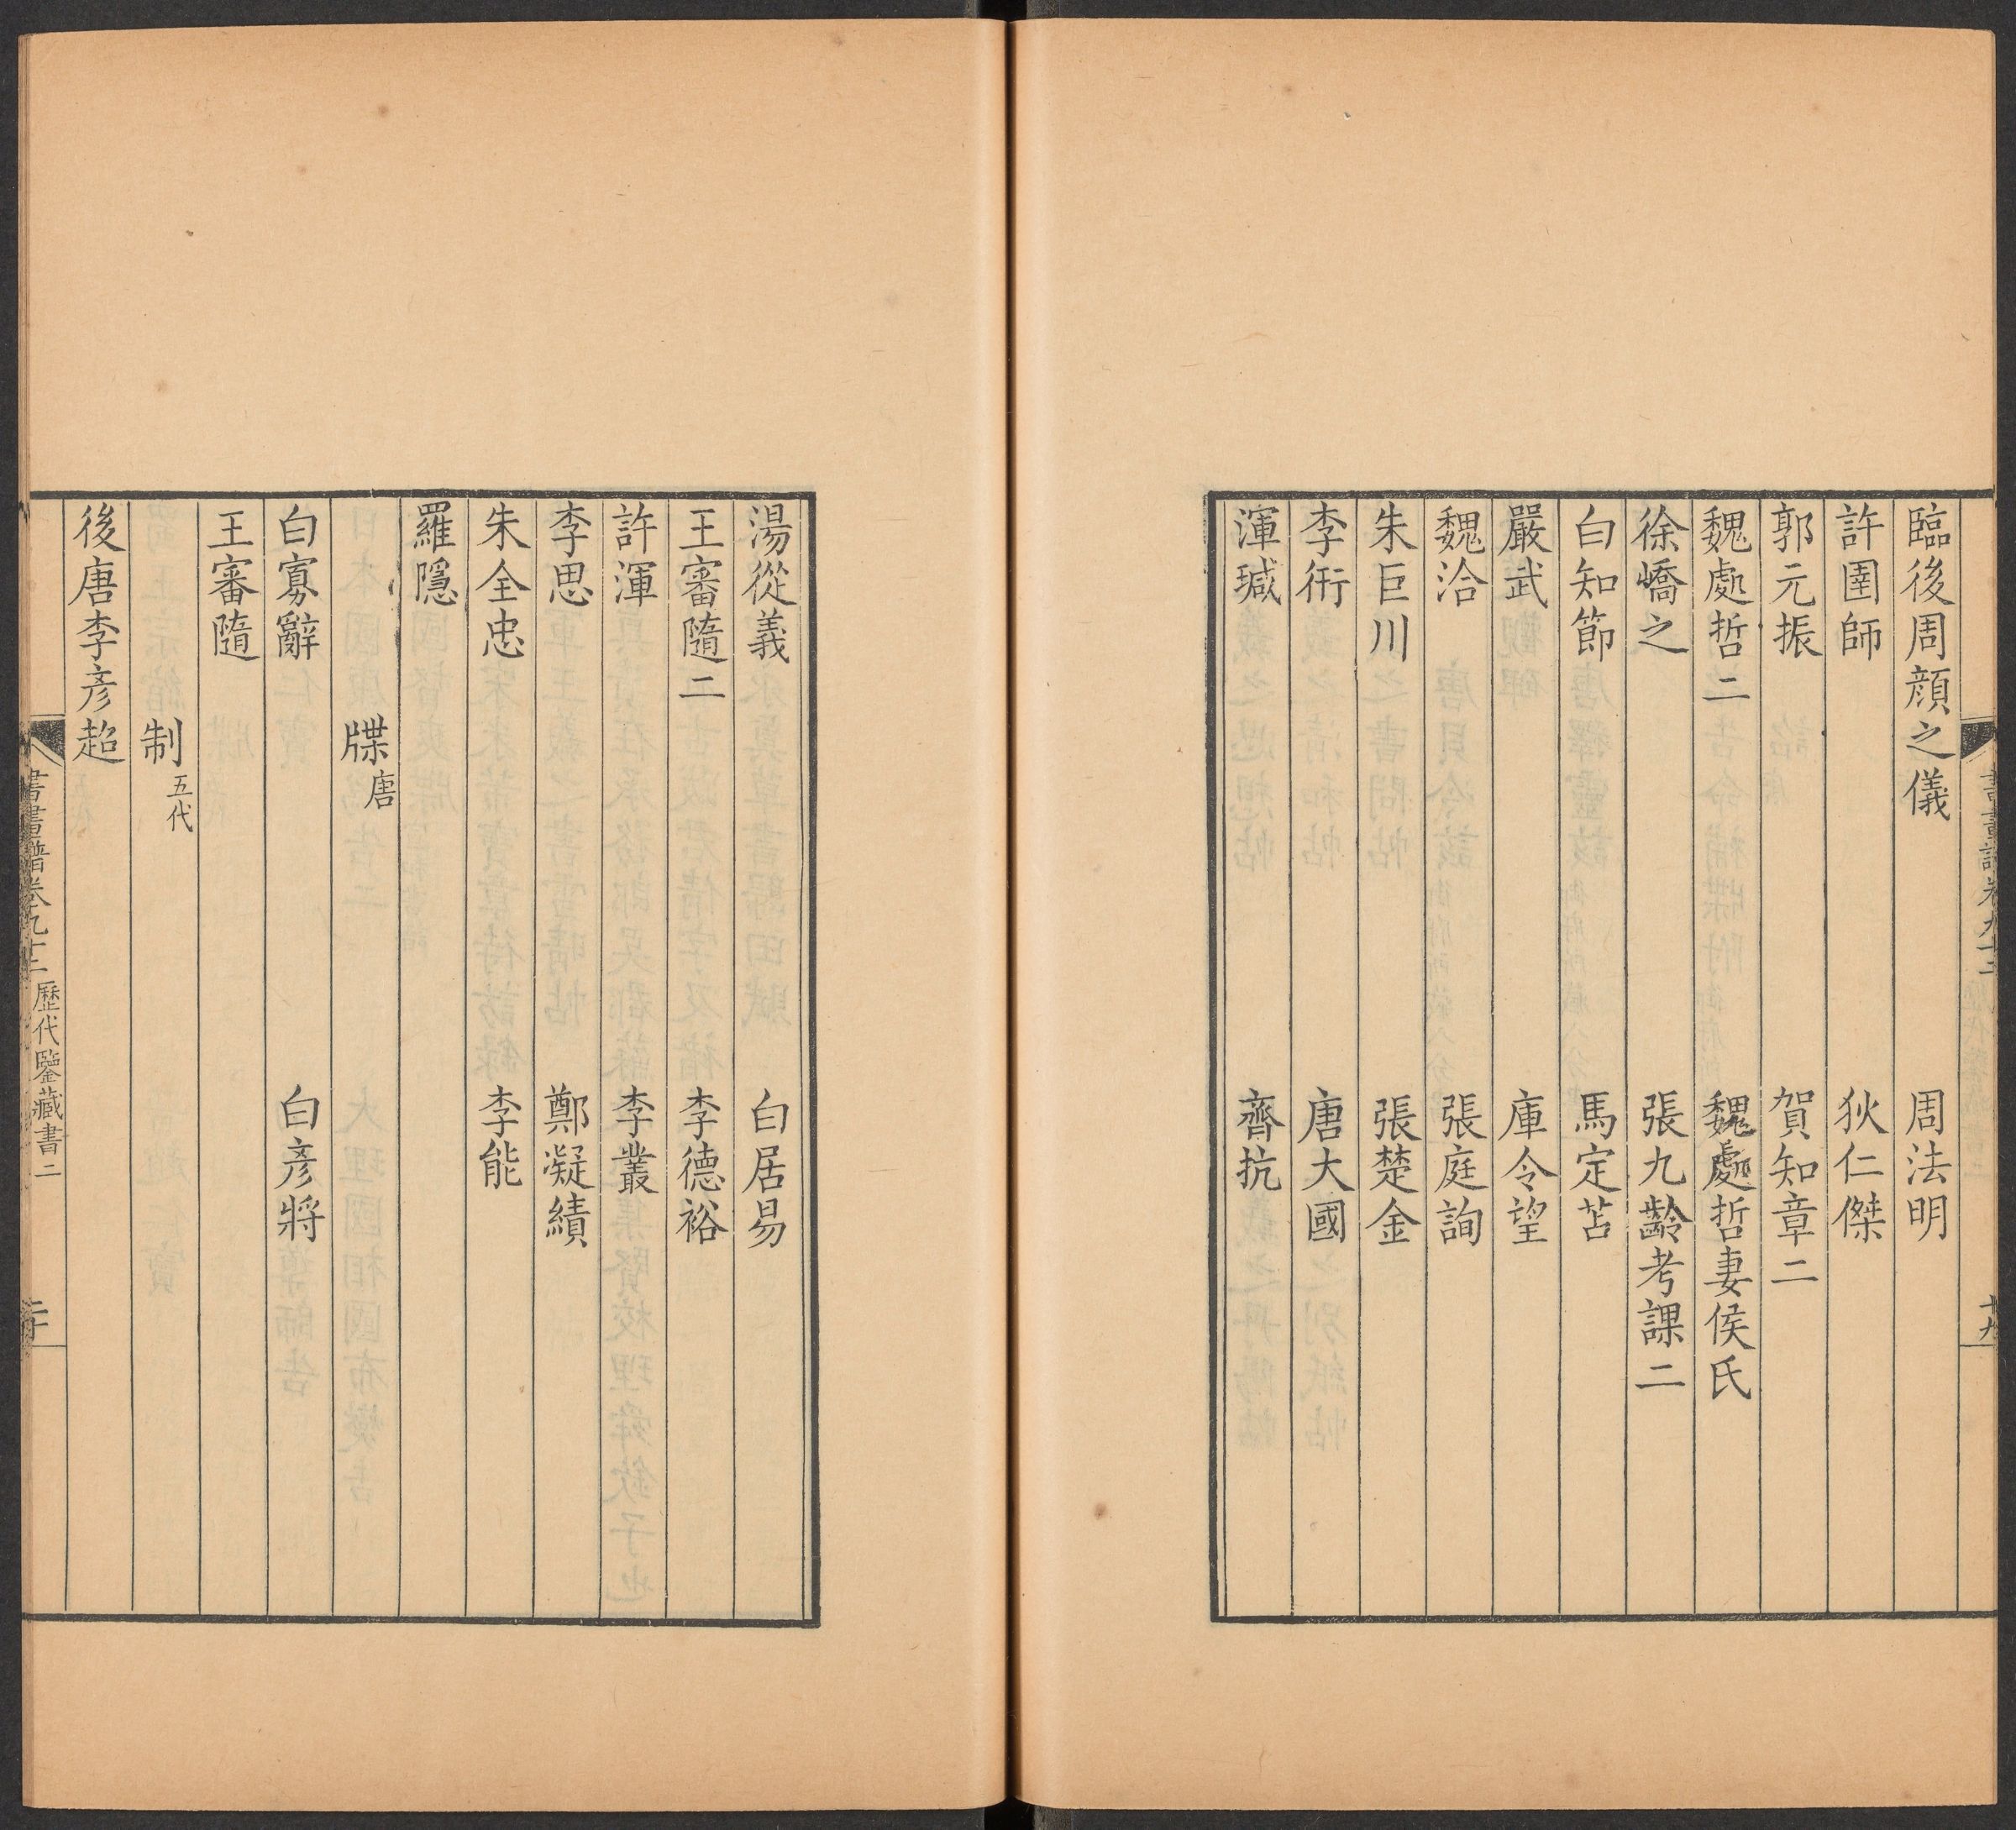 臨後周顏之儀 周法明
許圉師 狄仁傑
郭元振 賀知章二
魏處哲二 魏處哲妻侯氏
徐嶠之 張九齡考課二
白知節 馬定苫
嚴武 庫令望
魏洽 張庭詢
朱巨川 張楚金
李衎 唐大國
渾瑊 齊抗
湯從義 白居易
王審隨二 李德裕
許渾 李叢
李思 鄭凝績
朱全忠 李能
羅隱
牒唐
白寡辭 白彥將
王審隨
制五代
後唐李彥超
書畫譜卷九十二 歷代鑒藏書二 二十